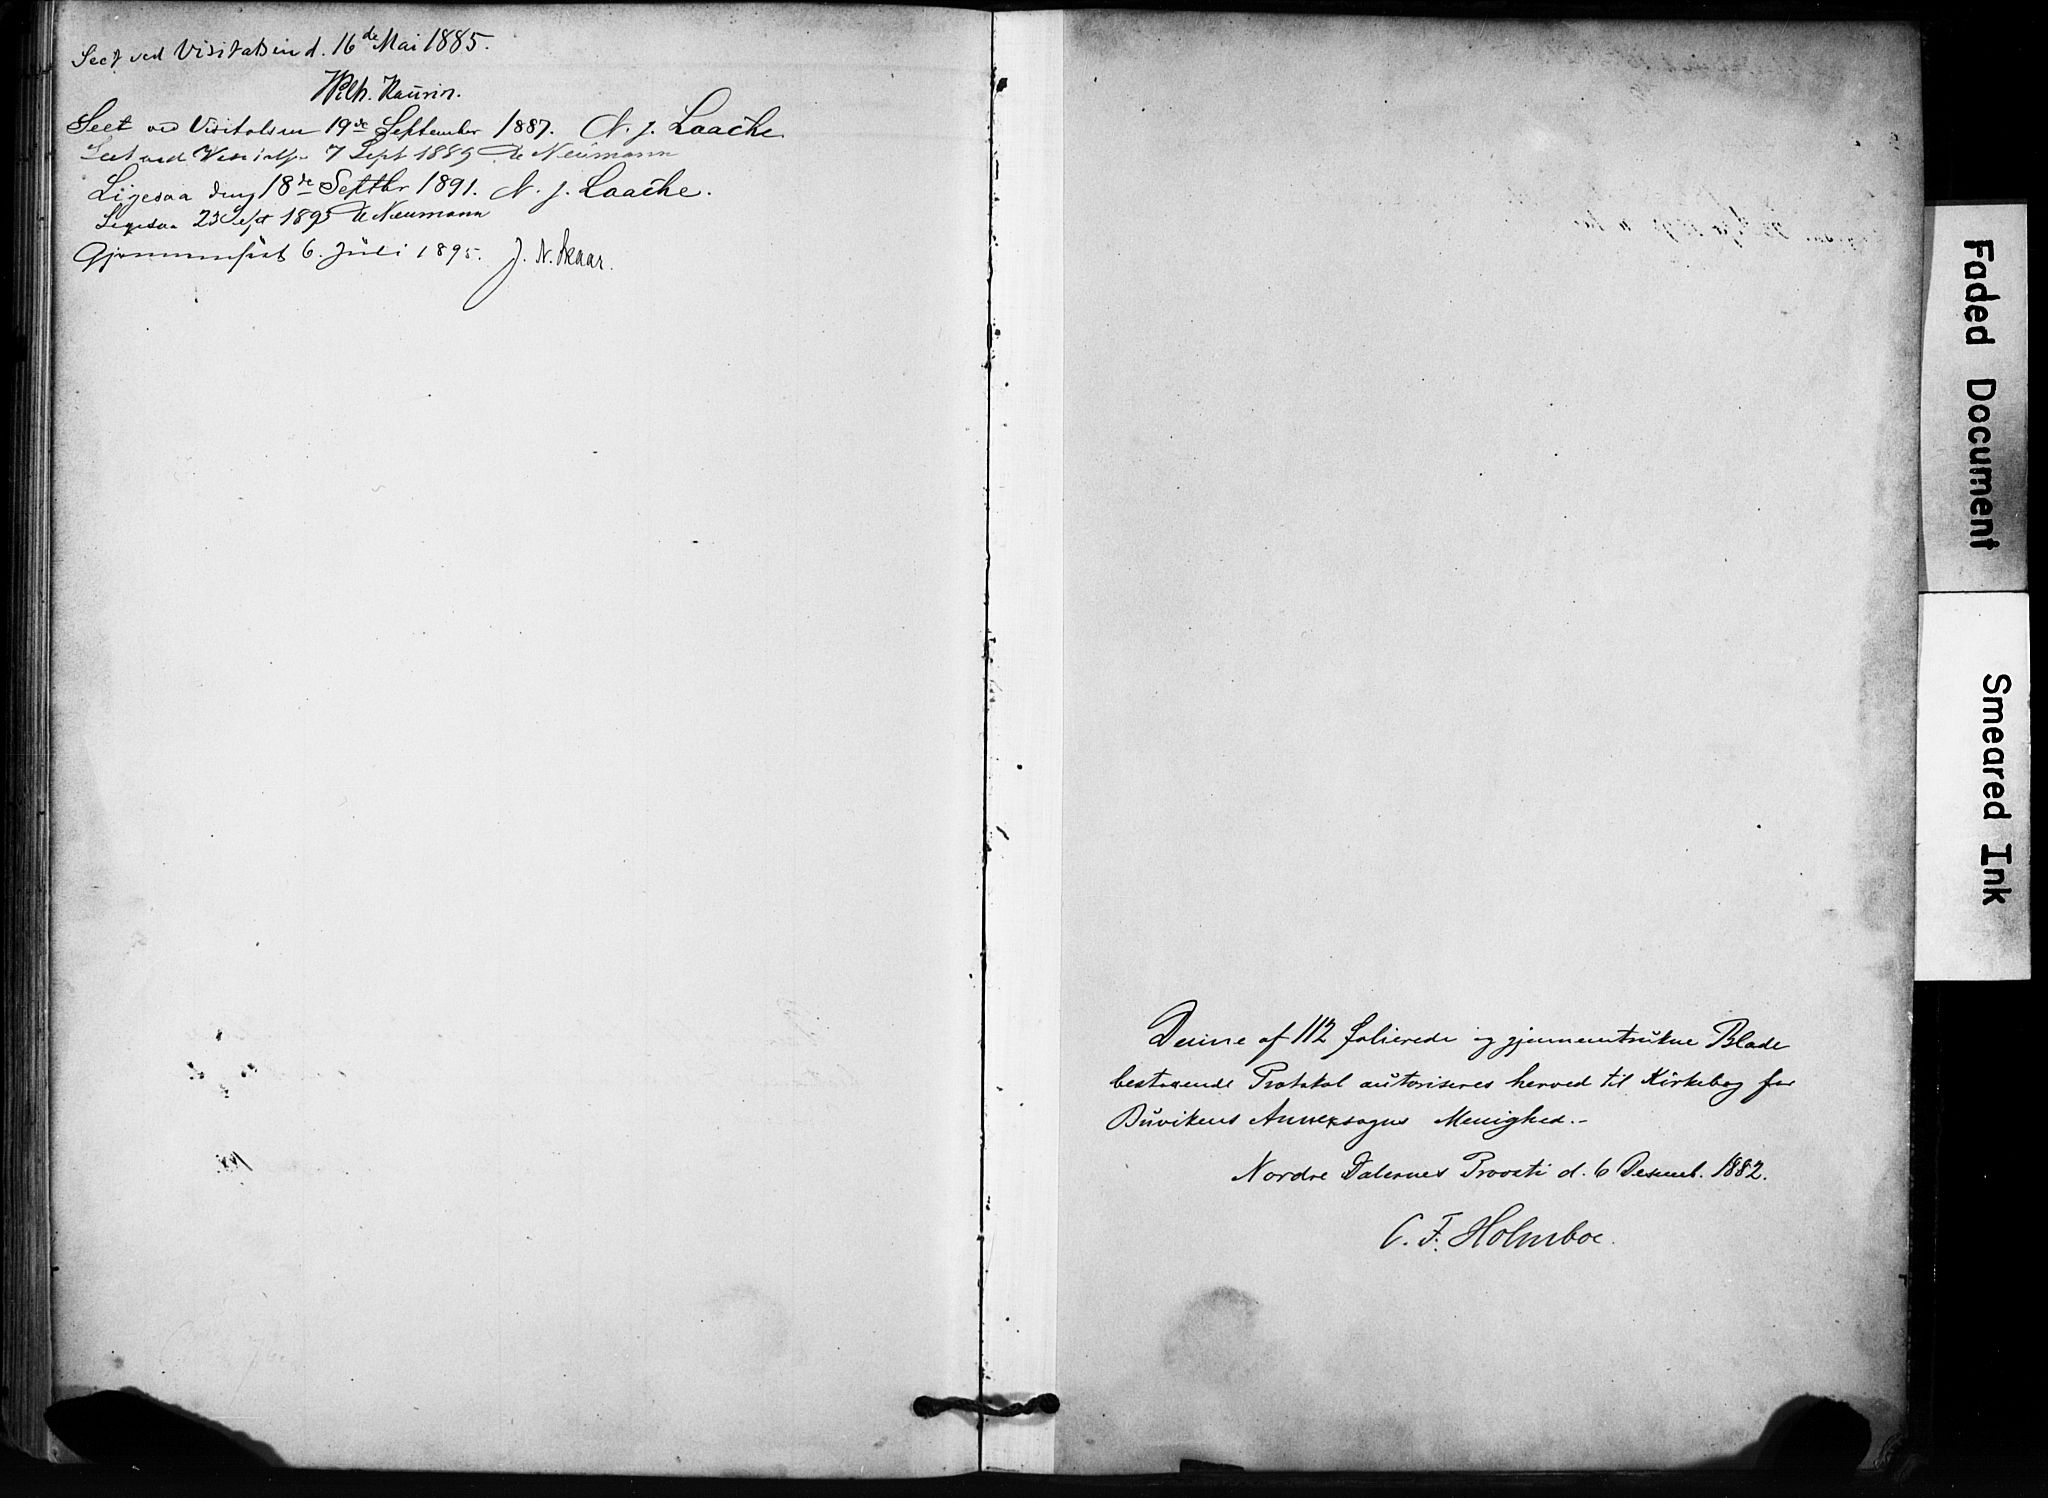 Seet ved Visitatsen d. 16de Mai 1885.
Wilh. Kaurin.
Seet ved Visitatsen 19de September 1887. N. J. Laache.
Seet ved 7 Sept 1889 Neumann
Ligesaa den 18de Septbr 1891. N. J. Laache.
Ligesaa 23 Sept 1893 Neumann
Gjennemseet 6. Juli 1895. J. N. Skaar.
Denne af 112 folierede og gjennemtrukne Blade
bestaaende Protokol autoriseres herved til Kirkebog for
Buvikens Annexsogns Menighed.-
Nordre Dalernes Provsti d. 6 Desemb. 1882.
C. F. Holmboe.
Faded Document
Smeared Ink